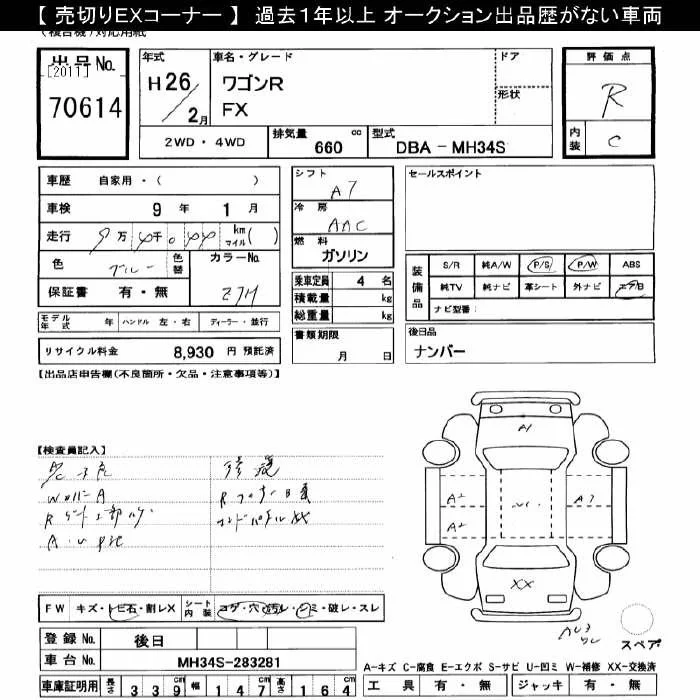 【 売切りEXコーナー 】 過去1年以上 オークション出品歴がない車両
出品No.
[2011]
70614
年式
H26/2月
車名・グレード
ワゴンR
FX
ドア
形状
評価点
R
内装
C
2WD・4WD
排気量 660 cc
型式 DBA - MH34S
車歴 自家用・( )
車検 9年 1月
走行 万 千 km マイル( )
色 ブルー
色替
カラーNo. Z7H
保証書 有・無
シフト
AT
冷房
AAC
燃料
ガソリン
乗車定員 4 名
積載量 kg
総重量 kg
セールスポイント
装備品
S/R 純A/W P/S P/W ABS
純TV 純ナビ 革シート 外ナビ エアB
ナビ型番:
モデル年式 年 ハンドル 左・右 ディーラー・並行
リサイクル料金 8,930 円 預託済
書類期限
月 日
後日品
ナンバー
【出品店申告欄(不良箇所・欠品・注意事項等)】
【検査員記入】
A1
A2
A2
XX
FW キズ・トビ石・割レX
シート内装 コゲ・穴・汚レ・シミ・破レ・スレ
登録No. 後日
車台No. MH34S-283281
車庫証明用 長さ 339 幅 147 高さ 164
スペア
A-キズ C-腐食 E-エクボ S-サビ U-凹ミ W-補修 X-交換済
工具 有・無 ジャッキ 有・無